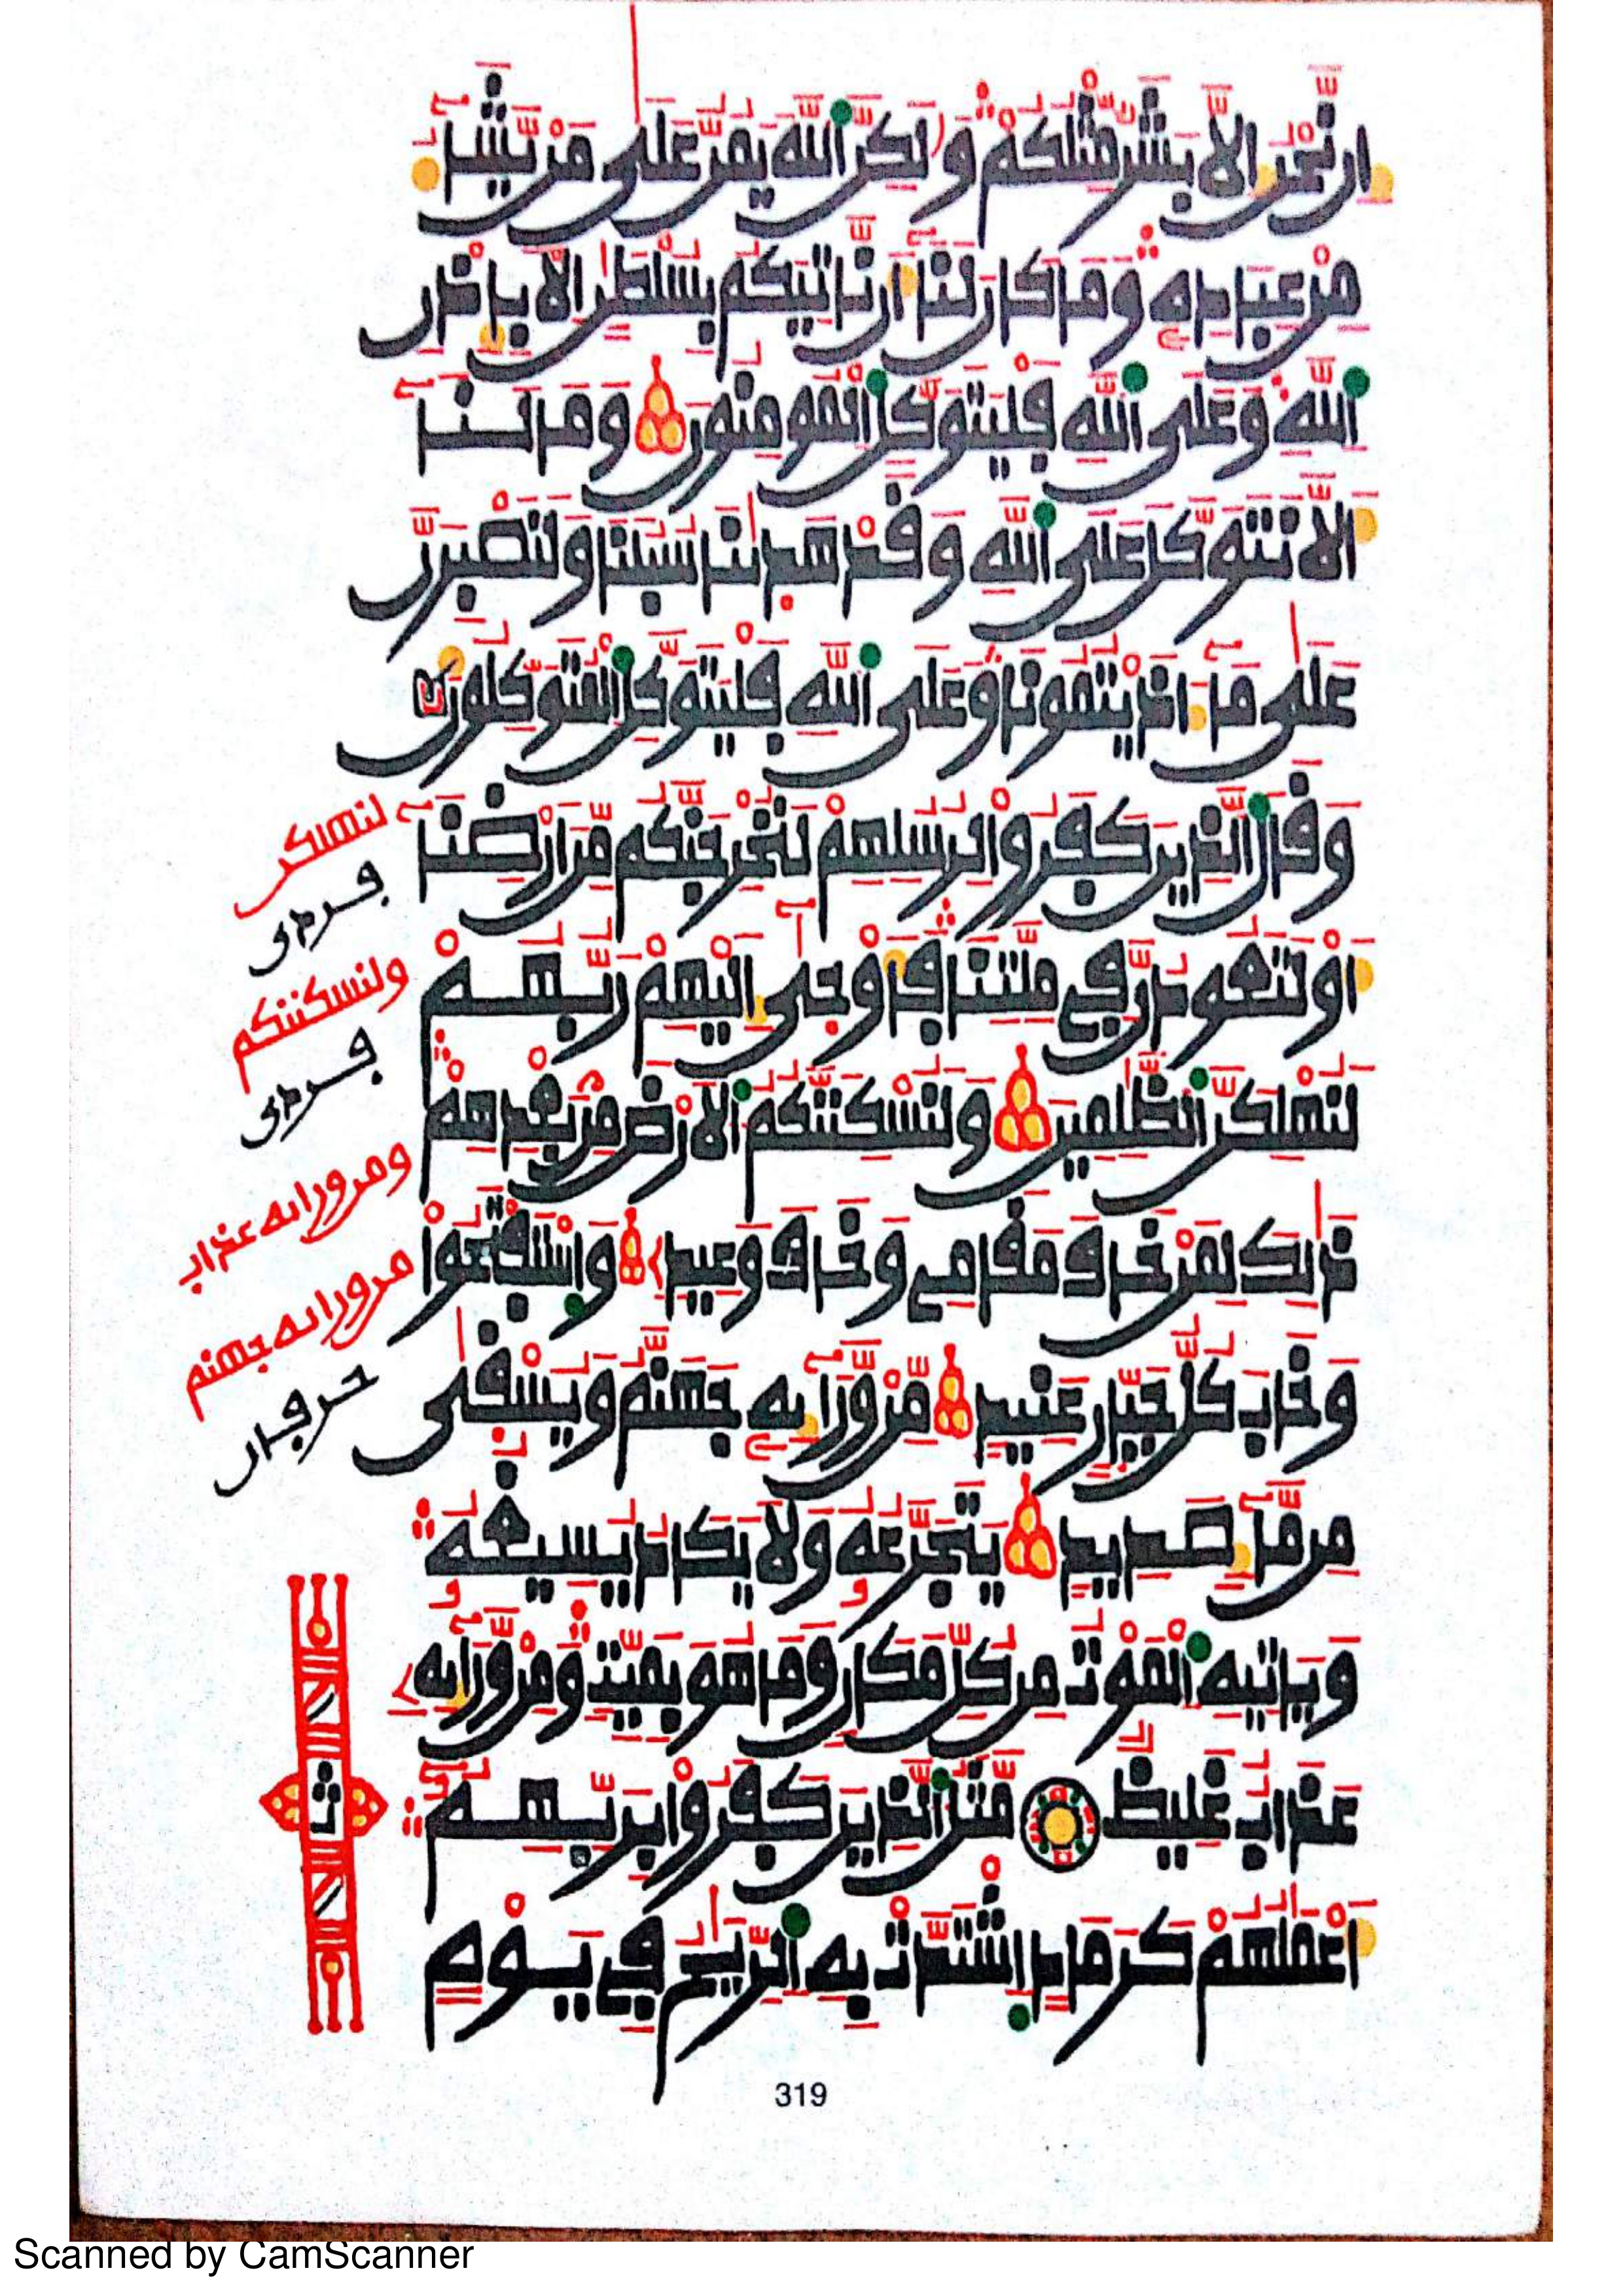 إن نحن إلا بشر مثلكم ولكن الله يمن على من يشاء
من عباده وما كان لنا أن ناتيكم بسلطن إلا بإذن
الله وعلى الله فليتوكل المومنون وما لنا
ألا نتوكل على الله وقد هدينا سبلنا ولنصبرن
على ما ءاذيتمونا وعلى الله فليتوكل المتوكلون
وقال الذين كفروا لرسلهم لنخرجنكم من أرضنا
أو لتعودن في ملتنا فأوحى إليهم ربهم
لنهلكن الظلمين ولنسكننكم الأرض من بعدهم
ذلك لمن خاف مقامي وخاف وعيد واستفتحوا
وخاب كل جبار عنيد من ورائه جهنم ويسقى
من ماء صديد يتجرعه ولا يكاد يسيغه
وياتيه الموت من كل مكان وما هو بميت ومن ورائه
عذاب غليظ مثل الذين كفروا بربهم
أعملهم كرماد اشتدت به الريح في يوم
لنهلكن
فردى
ولنسكننكم
فردى
ومن ورائه عذاب
من ورائه جهنم
حرفان
ث
319
Scanned by CamScanner